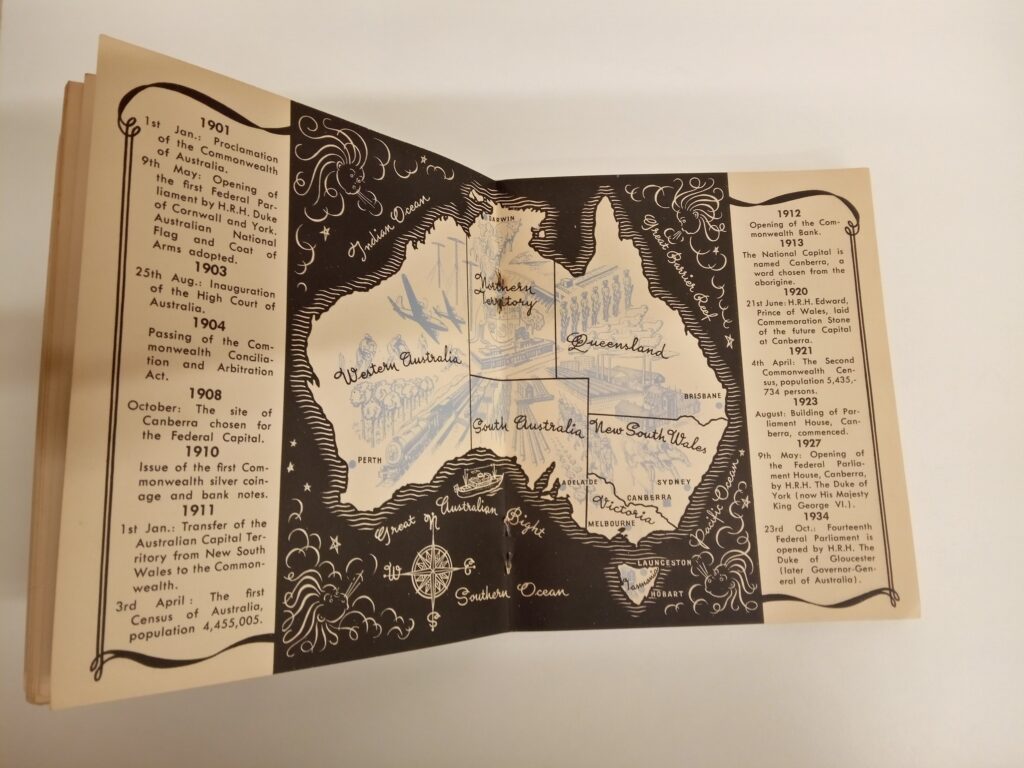 1901
1st Jan.: Proclamation
of the Commonwealth
of Australia.
9th May: Opening of
the first Federal Par-
liament by H.R.H. Duke
of Cornwall and York.
Australian National
Flag and Coat of
Arms adopted.
1903
25th Aug.: Inauguration
of the High Court of
Australia.
1904
Passing of the Com-
monwealth Concilia-
tion and Arbitration
Act.
1908
October: The site of
Canberra chosen for
the Federal Capital.
1910
Issue of the first Com-
monwealth silver coin-
age and bank notes.
1911
1st Jan.: Transfer of the
Australian Capital Ter-
ritory from New South
Wales to the Common-
wealth.
3rd April: The first
Census of Australia,
population 4,455,005.
Indian Ocean
DARWIN
Great Barrier Reef
Northern
Territory
Western Australia
Queensland
BRISBANE
South Australia
New South Wales
PERTH
ADELAIDE
SYDNEY
CANBERRA
Victoria
MELBOURNE
Great Australian Bight
Pacific Ocean
N
W
E
S
Southern Ocean
LAUNCESTON
Tasmania
HOBART
1912
Opening of the Com-
monwealth Bank.
1913
The National Capital is
named Canberra, a
word chosen from the
aborigine.
1920
21st June: H.R.H. Edward,
Prince of Wales, laid
Commemoration Stone
of the future Capital
at Canberra.
1921
4th April: The Second
Commonwealth Cen-
sus, population 5,435,-
734 persons.
1923
August: Building of Par-
liament House, Can-
berra, commenced.
1927
9th May: Opening of
the Federal Parlia-
ment House, Canberra,
by H.R.H. The Duke of
York (now His Majesty
King George VI.).
1934
23rd Oct.: Fourteenth
Federal Parliament is
opened by H.R.H. The
Duke of Gloucester
(later Governor-Gen-
eral of Australia).